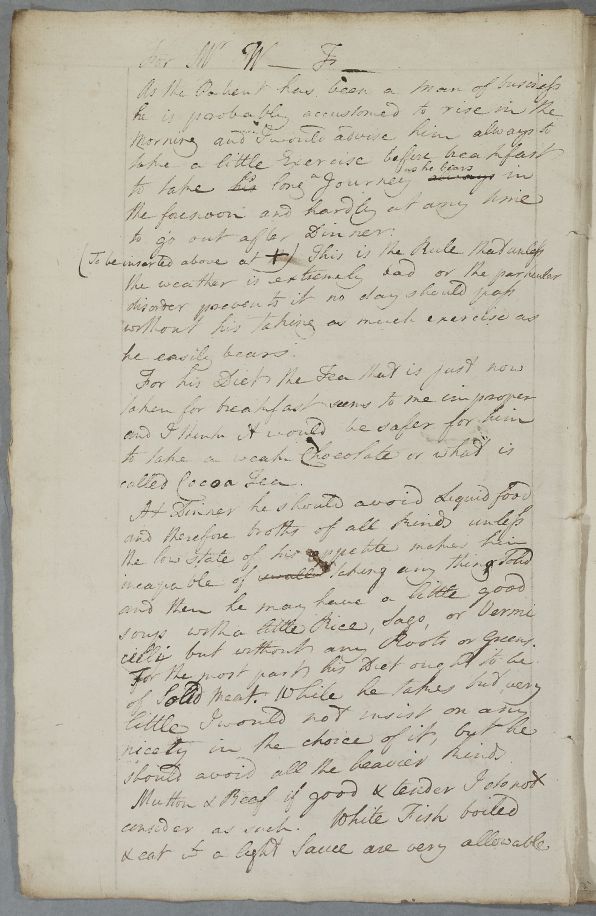 For Mr W — Fr —
As the Patient has been a man of business
he is probably accustomed to rise in the
morning and I would advise him always to
take a little Exercise before breakfast
to take his long a Journey as he bears always in
the forenoon and hardly at any time
to go out after Dinner.
(To be inserted above at +) This is the Rule that unless
the weather is extremely bad or the particular
disorder prevents it no day should pass
without his taking as much exercise as
he easily bears.
For his Diet the Tea that is just now
taken for breakfast seems to me improper
and I think it would be safer for him
to take a weak Chocolate or what is
called Cocoa Tea.
At Dinner he should avoid Liquid food
and therefore broths of all kinds unless
the low state of his appetite makes him
incapable of taking any thing Solid
and then he may have a little good
soup with a little Rice, Sago, or Vermi
celli but without any Roots or Greens.
For the most part his Diet ought to be
of Solid meat. While he takes but very
little I would not insist on any
nicety in the choice of it, but he
should avoid all the heavier kinds
Mutton & Beef if good & tender I do not
consider as such. White Fish boiled
& eat with a light Sauce are very allowable